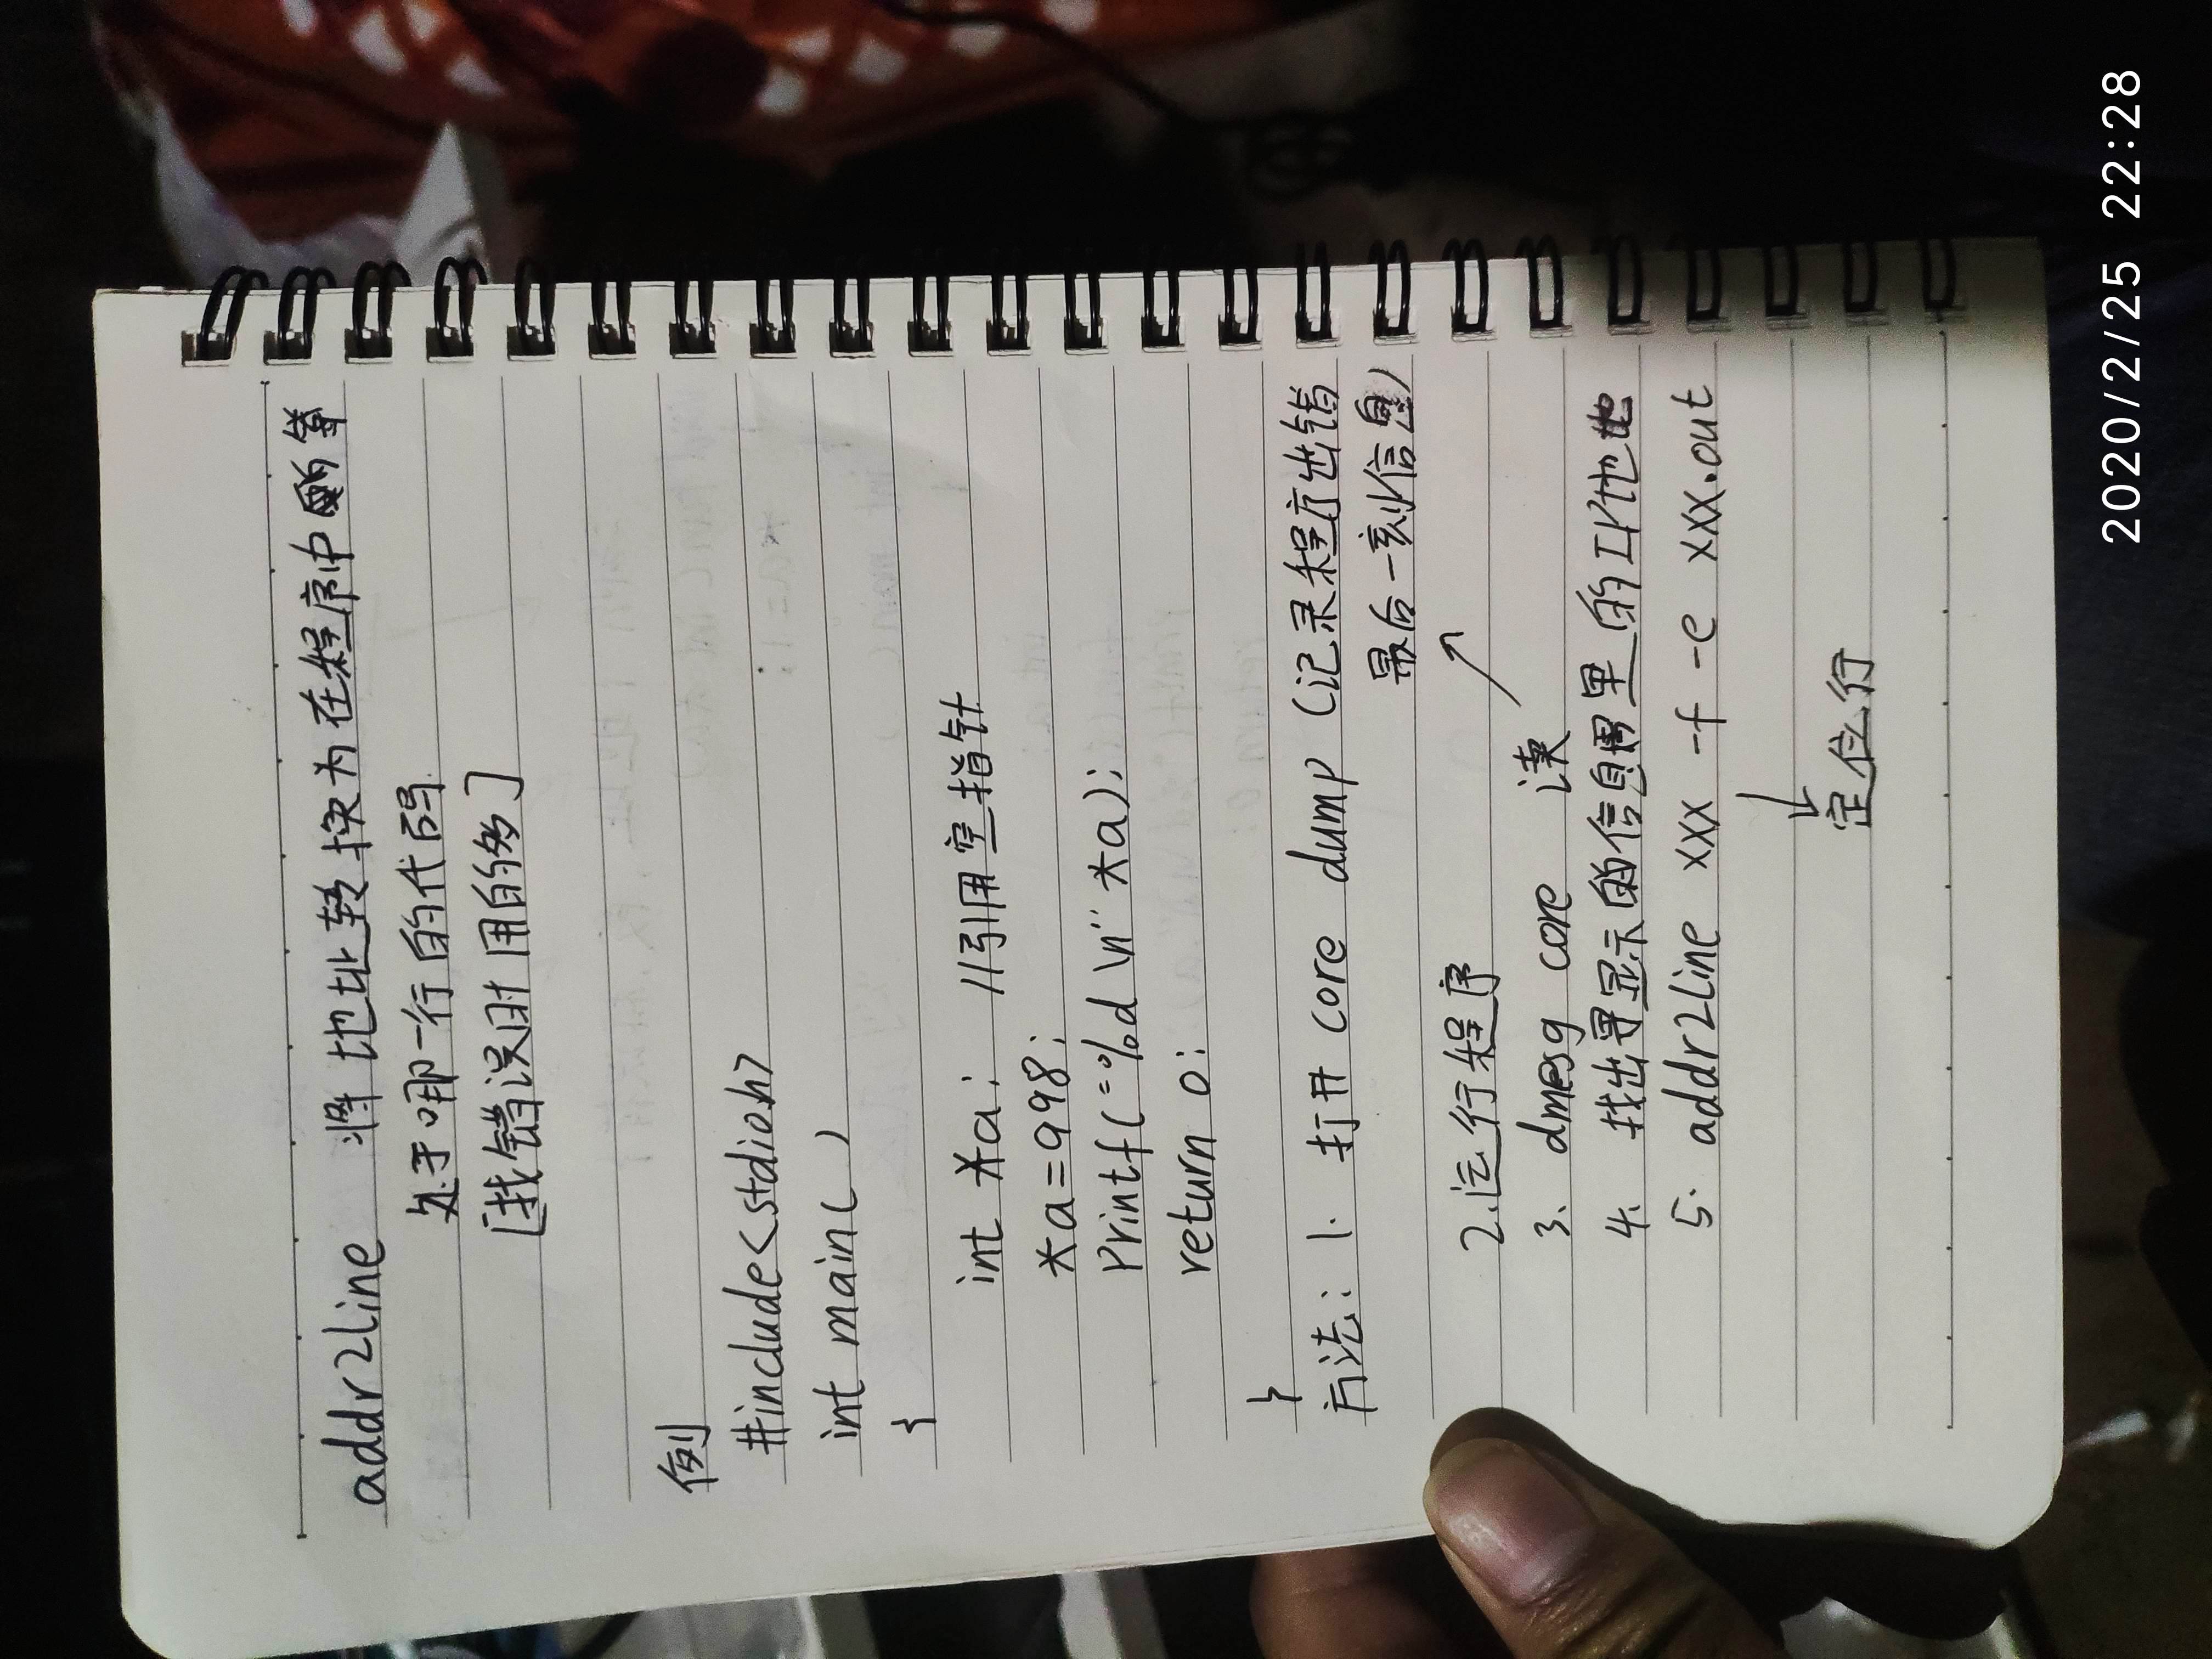 addr2line 将地址转换为在程序中的第
处于哪一行的代码
[找错误时用的多]
例
#include<stdio.h>
int main( )
{
int *a; //引用空指针
*a=998;
Printf("%d \n" *a);
return 0;
}
方法: 1. 打开 core dump (记录程序出错
最后一刻信息)
2.运行程序
3. dmesg core 读
4. 找出显示的信息里的IP地址
5. addr2line xxx -f -e xxx.out
定位行
2020/2/25 22:28